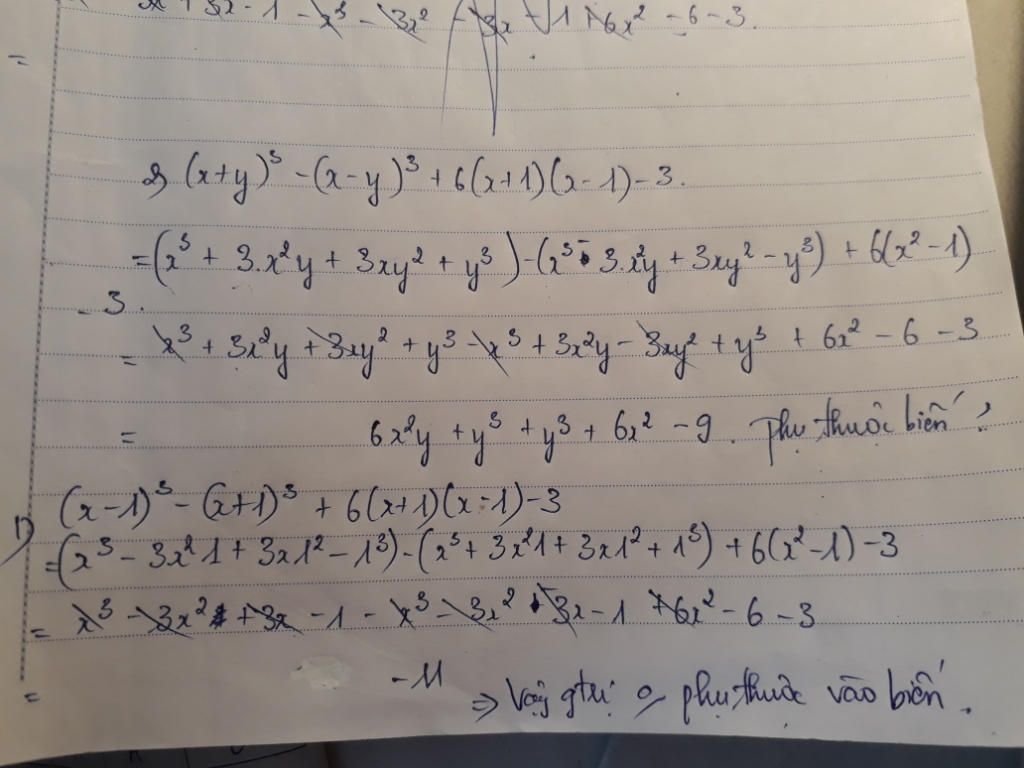 x³ + 3x - 1 - x³ - 3x² - 3x - 1 + 6x² - 6 - 3.
=
2) (x+y)³ - (x-y)³ + 6(x+1)(x-1) - 3.
= (x³ + 3.x²y + 3xy² + y³) - (x³ - 3.x²y + 3xy² - y³) + 6(x² - 1)
- 3.
= x³ + 3x²y + 3xy² + y³ - x³ + 3x²y - 3xy² + y³ + 6x² - 6 - 3
= 6x²y + y³ + y³ + 6x² - 9. phụ thuộc biến?
1) (x-1)³ - (x+1)³ + 6(x+1)(x-1) - 3
= (x³ - 3x²1 + 3x1² - 1³) - (x³ + 3x²1 + 3x1² + 1³) + 6(x² - 1) - 3
= x³ - 3x² + 3x - 1 - x³ - 3x² - 3x - 1 + 6x² - 6 - 3
= -11 ⇒ Vậy gtrị o phụ thuộc vào biến.